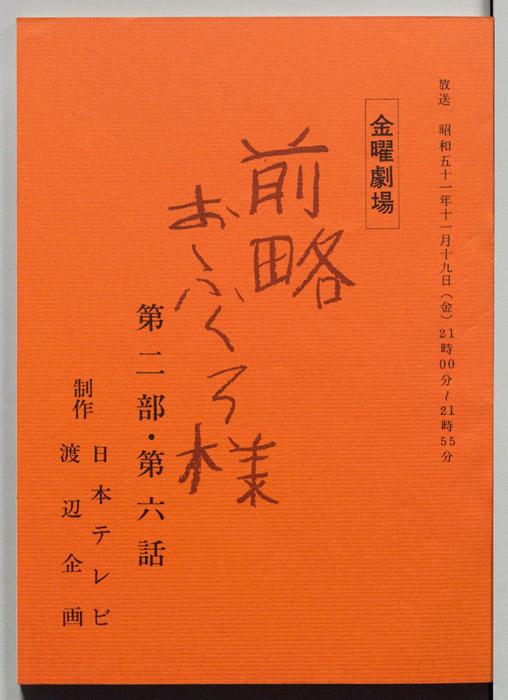 放送 昭和五十一年十一月十九日(金)21時00分~21時55分
金曜劇場
前略
おふくろ様
第二部・第六話
制作
日本テレビ
渡辺企画